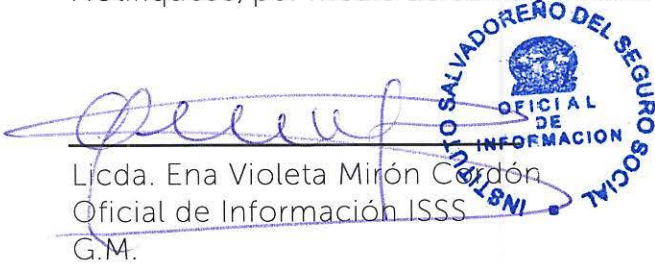 INSTITUTO SALVADOREÑO DEL SEGURO SOCIAL
OFICIAL
DE
INFORMACION
Licda. Ena Violeta Mirón Cordón
Oficial de Información ISSS
G.M.